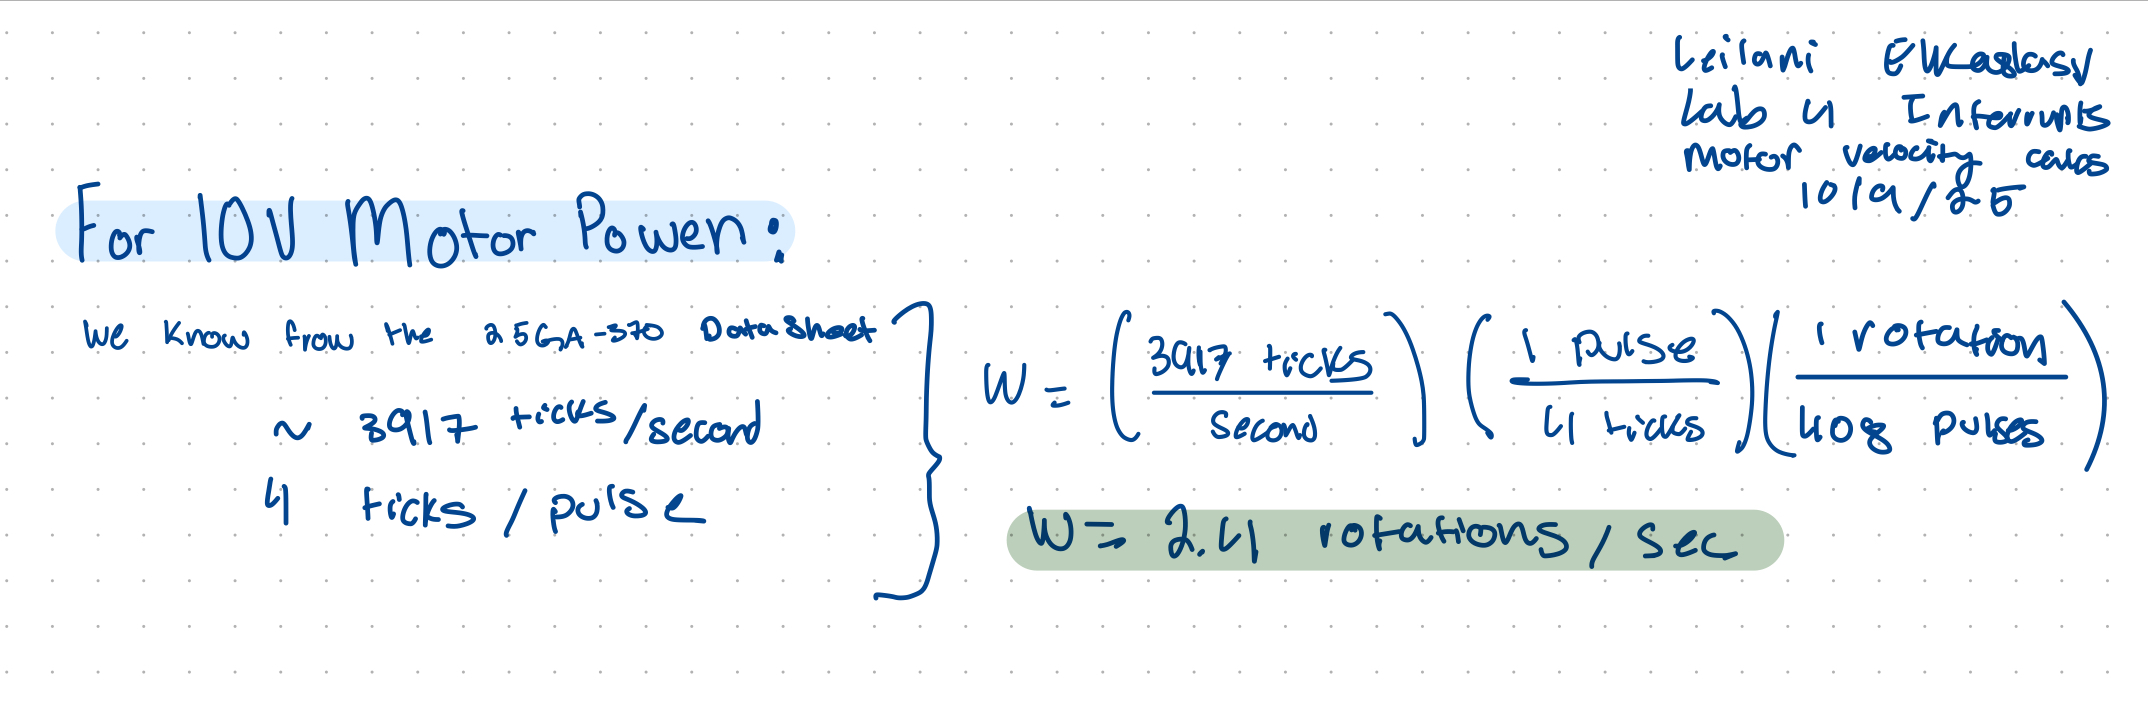 Leilani Elkaslasy
Lab 4 Interrupts
Motor velocity calcs
10/9/25
For 10V Motor Power:
We know from the 25GA-370 Datasheet
~ 3917 ticks/second
4 ticks / pulse
W = (3917 ticks / second) (1 pulse / 4 ticks) (1 rotation / 408 pulses)
W = 2.4 rotations / sec